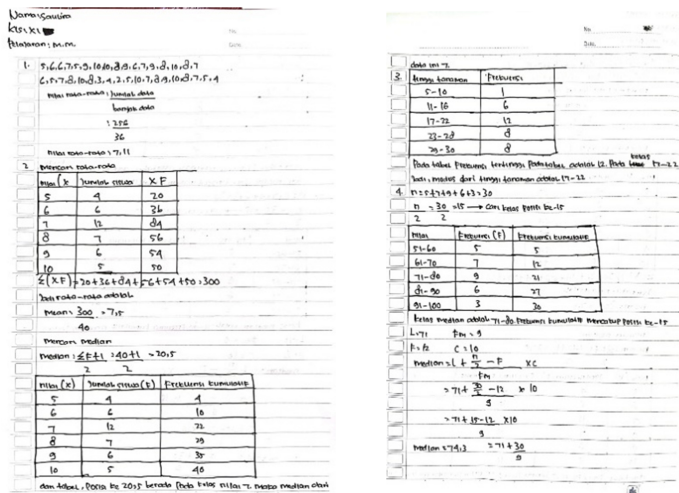 Nama: Saufira
Kls: XI
Pelajaran: M.M.
1. 5,6,6,7,5,9,10,10,8,9,6,7,9,8,10,8,7
6,5,7,8,10,8,3,4,2,5,10,7,8,9,10,8,7,5,4
Nilai rata-rata: Jumlah data
banyak data
: 256
36
Nilai rata-rata: 7,11
2 Mencari rata-rata
Nilai (x Jumlah siswa XF
5 4 20
6 6 36
7 12 84
8 7 56
9 6 54
10 5 50
Σ(XF) = 20+36+84+56+54+50=300
Jadi rata-rata adalah
Mean: 300 = 7,5
40
Mencari median
Median: ΣF+1 = 40+1 = 20,5
2 2
Nilai (x) Jumlah siswa (F) Frekuensi kumulatif
5 4 4
6 6 10
7 12 22
8 7 29
9 6 35
10 5 40
dari tabel, Posisi ke 20,5 berada Pada kelas nilai 7. maka median dari
data ini 7.
3. tinggi tanaman Frekuensi
5-10 1
11-16 6
17-22 12
23-28 8
29-30 8
Pada tabel Frekuensi tertinggi Pada tabel adalah 12. Pada kelas 17-22
Jadi, modus dari tinggi tanaman adalah 17-22
4. n = 5+7+9+6+3=30
n = 30 = 15 → cari kelas Posisi ke-15
2 2
Nilai Frekuensi (F) Frekuensi kumulatif
51-60 5 5
61-70 7 12
71-80 9 21
81-90 6 27
91-100 3 30
kelas median adalah 71-80. Frekuensi kumulatif mencakup Posisi ke-15
L=71 Fm = 9
F=12 C=10
Median = L + n/2 - F x C
Fm
= 71 + 30/2 - 12 x 10
9
= 71 + 15-12 x10
9
Median = 74,3 = 71 + 30
9